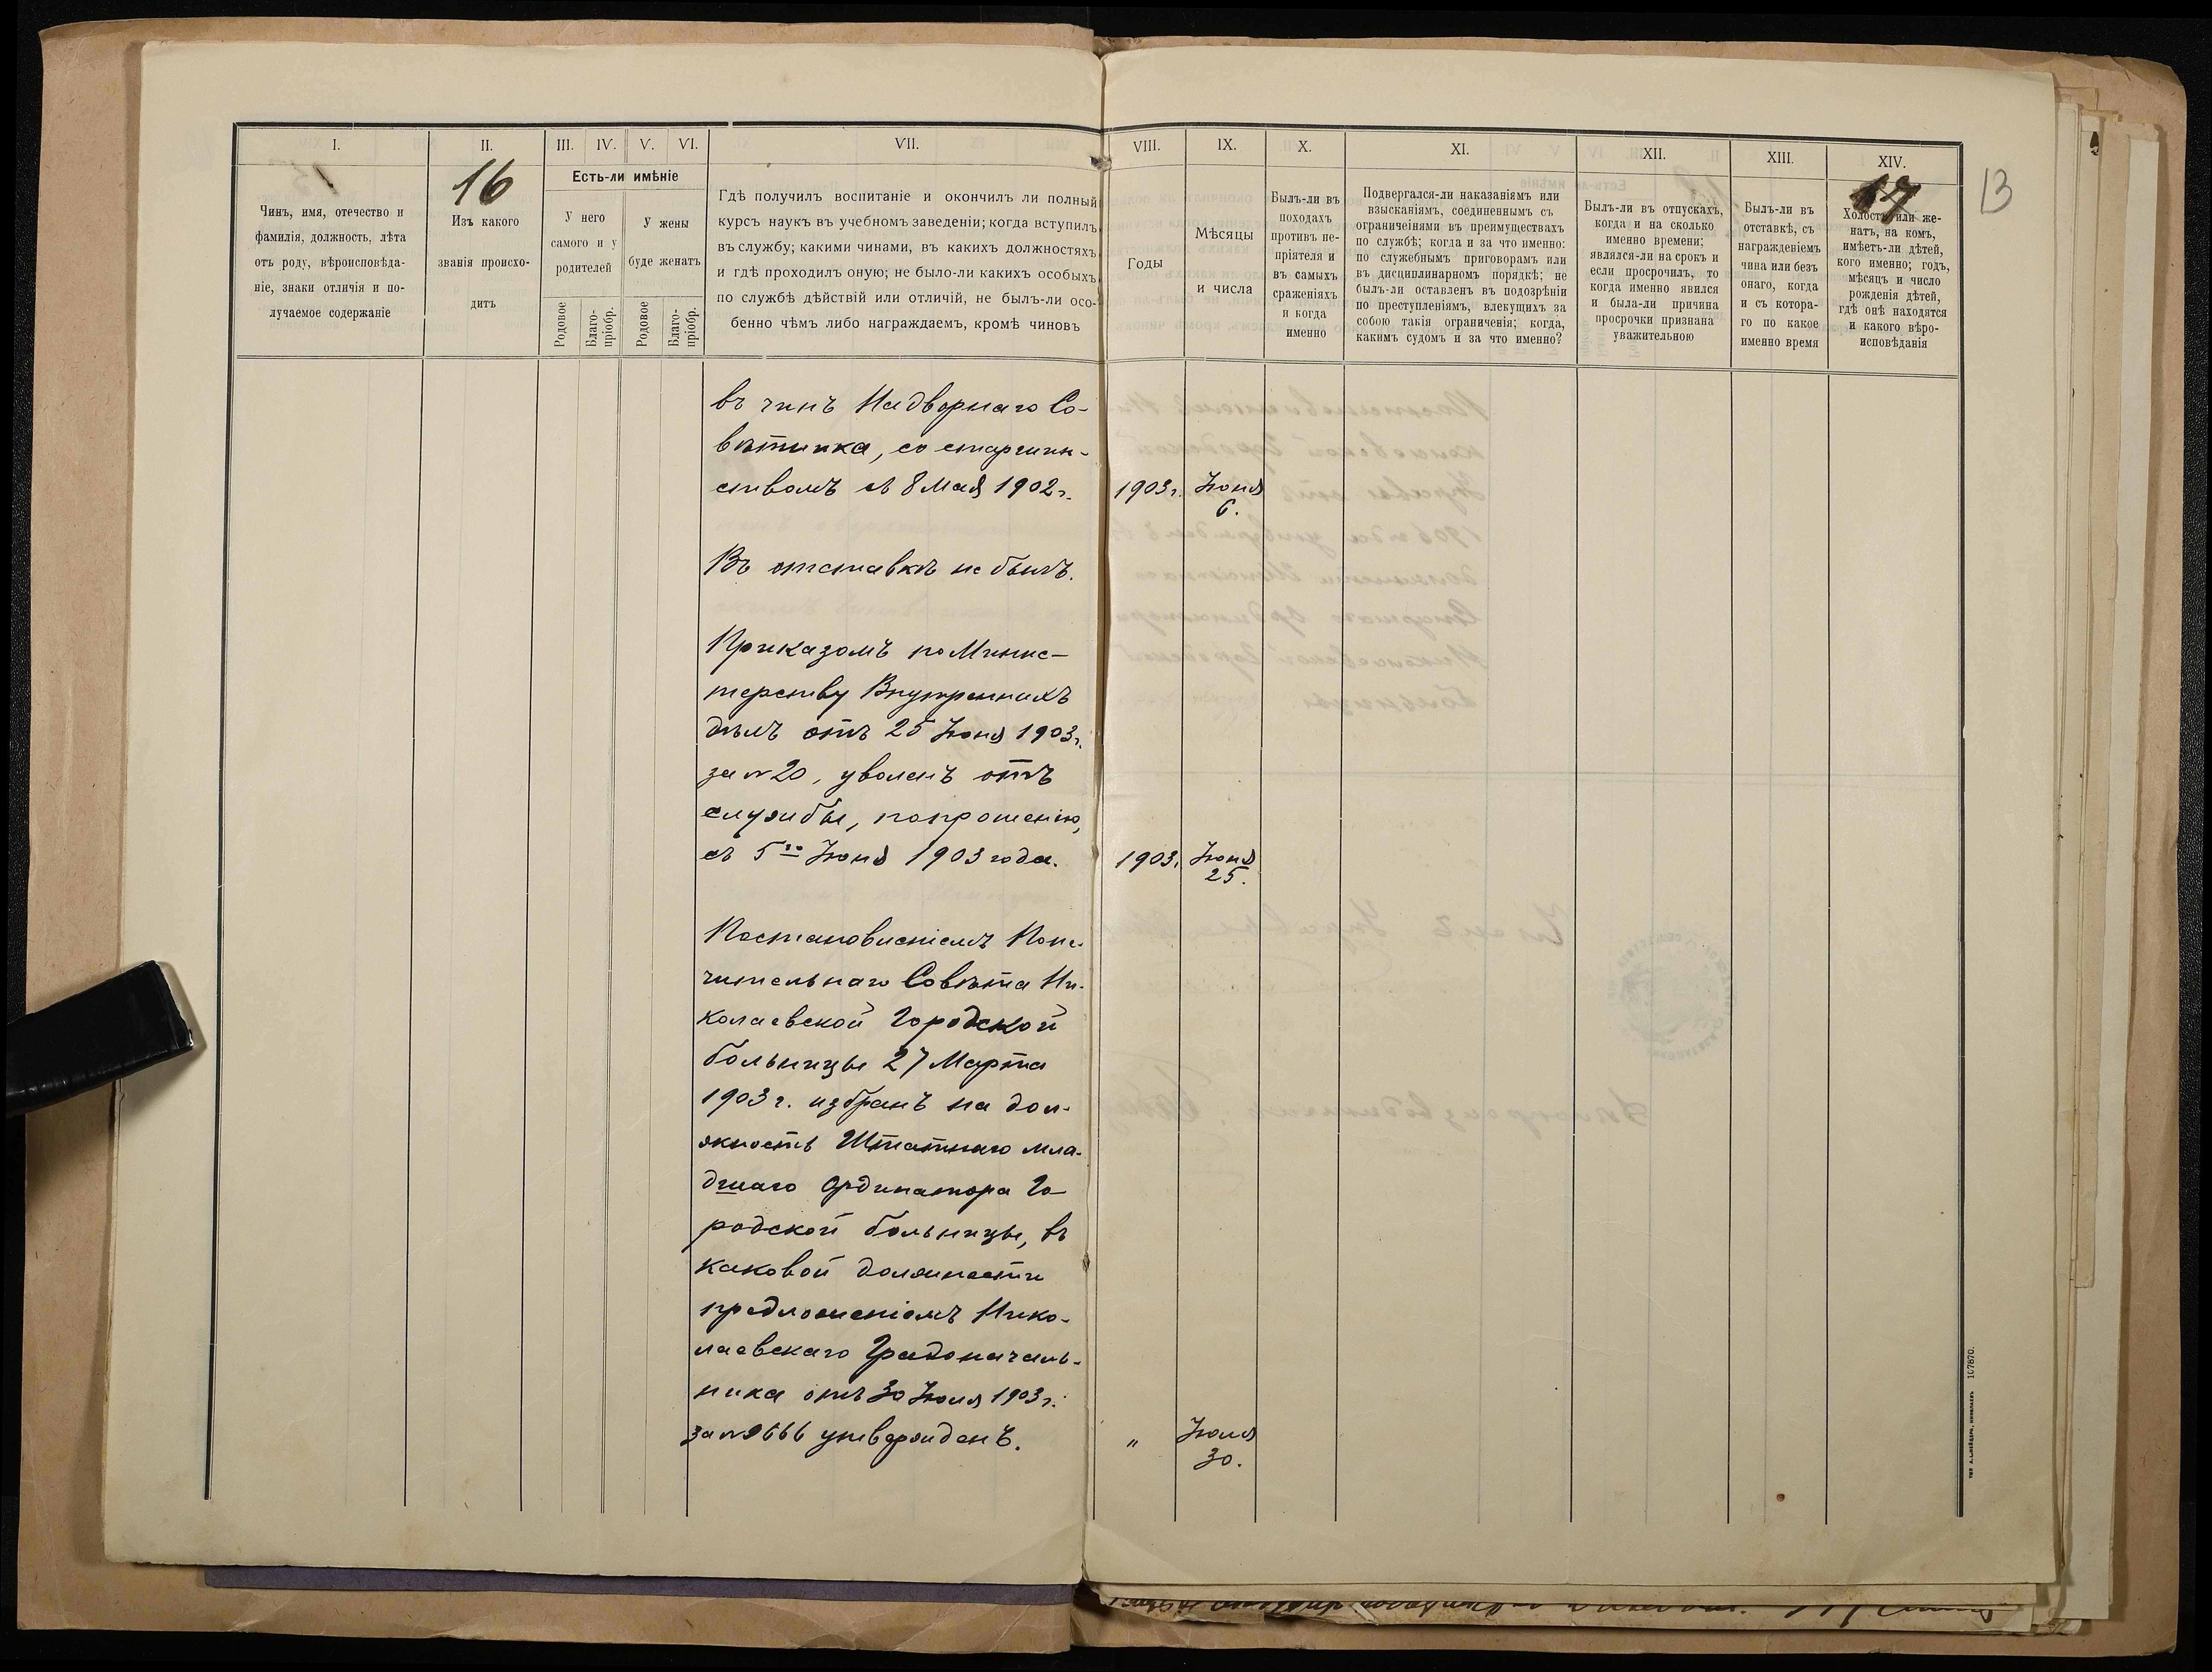 I.
II.
III.
IV.
V.
VI.
VII.
16
Есть-ли имѣніе
Чинъ, имя, отечество и
фамилія, должность, лѣта
отъ роду, вѣроисповѣда-
ніе, знаки отличія и по-
лучаемое содержаніе
Изъ какого
званія происхо-
дитъ
У него
самого и у
родителей
У жены
буде женатъ
Родовое
Благо-
пріобр.
Родовое
Благо-
пріобр.
Гдѣ получилъ воспитаніе и окончилъ ли полный
курсъ наукъ въ учебномъ заведеніи; когда вступилъ
въ службу; какими чинами, въ какихъ должностяхъ
и гдѣ проходилъ оную; не было-ли какихъ особыхъ
по службѣ дѣйствій или отличій, не былъ-ли осо-
бенно чѣмъ либо награждаемъ, кромѣ чиновъ
въ чинъ Надворнаго Со-
вѣтника, со старшин-
ствомъ съ 8 Мая 1902 г.
Въ отставкѣ не былъ.
Приказомъ по Минис-
терству Внутреннихъ
дѣлъ отъ 25 Іюня 1903 г.
за № 20, уволенъ отъ
службы, по прошенію,
съ 5го Іюня 1903 года.
Постановленіемъ Попе-
чительнаго Совѣта Ни-
колаевской Городской
больницы 27 Марта
1903 г. избранъ на дол-
жность Штатнаго мла-
дшаго Ординатора Го-
родской больницы, въ
каковой должности
предложеніемъ Нико-
лаевскаго Градоначаль-
ника отъ 30 Іюля 1903 г.
за № 9666 утвержденъ.
VIII.
IX.
X.
XI.
XII.
XIII.
XIV.
17
13
Годы
Мѣсяцы
и числа
Былъ-ли въ
походахъ
противъ не-
пріятеля и
въ самыхъ
сраженіяхъ
и когда
именно
Подвергался-ли наказаніямъ или
взысканіямъ, соединеннымъ съ
ограниченіями въ преимуществахъ
по службѣ; когда и за что именно:
по служебнымъ приговорамъ или
въ дисциплинарномъ порядкѣ; не
былъ-ли оставленъ въ подозрѣніи
по преступленіямъ, влекущихъ за
собою такія ограниченія; когда,
какимъ судомъ и за что именно?
Былъ-ли въ отпускахъ,
когда и на сколько
именно времени;
являлся-ли на срокъ и
если просрочилъ, то
когда именно явился
и была-ли причина
просрочки признана
уважительною
Былъ-ли въ
отставкѣ, съ
награжденіемъ
чина или безъ
онаго, когда
и съ котора-
го по какое
именно время
Холостъ или же-
натъ, на комъ,
имѣетъ-ли дѣтей,
кого именно; годъ,
мѣсяцъ и число
рожденія дѣтей,
гдѣ онѣ находятся
и какого вѣро-
исповѣданія
1903 г.
Іюня
6.
1903 г.
Іюня
25.
"
Іюля
30.
107870.